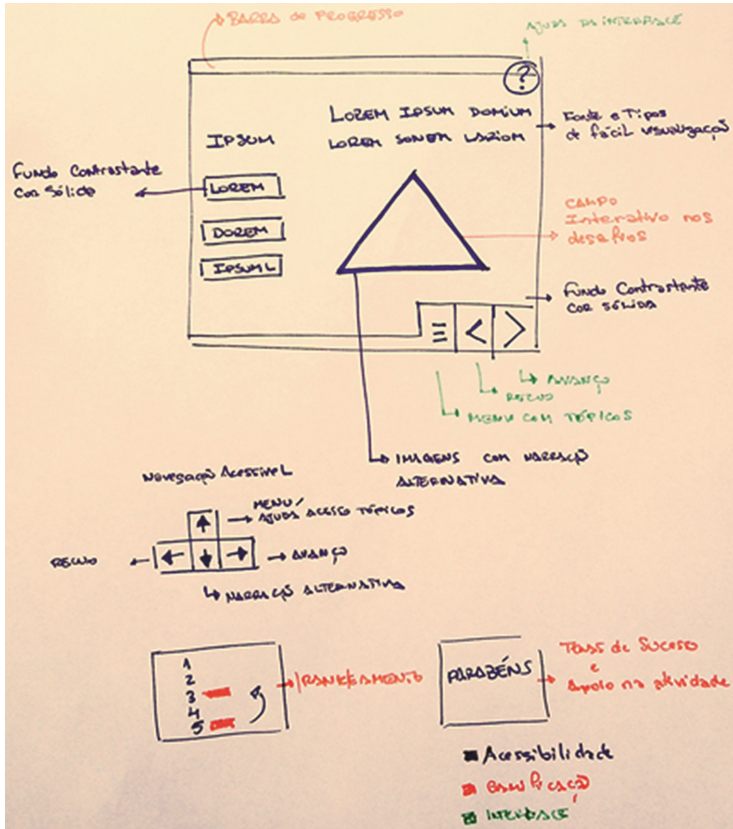 BARRA de PROGRESSO
AJUDA DA INTERFACE
?
LOREM IPSUM DOMIUM
LOREM SONEM LARIOM
IPSUM
Fonte e Tipos
de fácil visualização
Fundo Contrastante
Cor Sólida
LOREM
DOREM
IPSUML
CAMPO
Interativo nos
desafios
Fundo Contrastante
COR SÓLIDA
< >
AVANÇO
RECUO
MENU COM TÓPICOS
IMAGENS COM NARRAÇÃO
ALTERNATIVA
Navegação Acessível
MENU/
AJUDA ACESSO TÓPICOS
RECUO
AVANÇO
NARRAÇÃO ALTERNATIVA
1
2
3
4
5
RANKEAMENTO
PARABÉNS
TELAS de Sucesso
e
Apoio na atividade
Acessibilidade
GAMIFICAÇÃO
INTERFACE